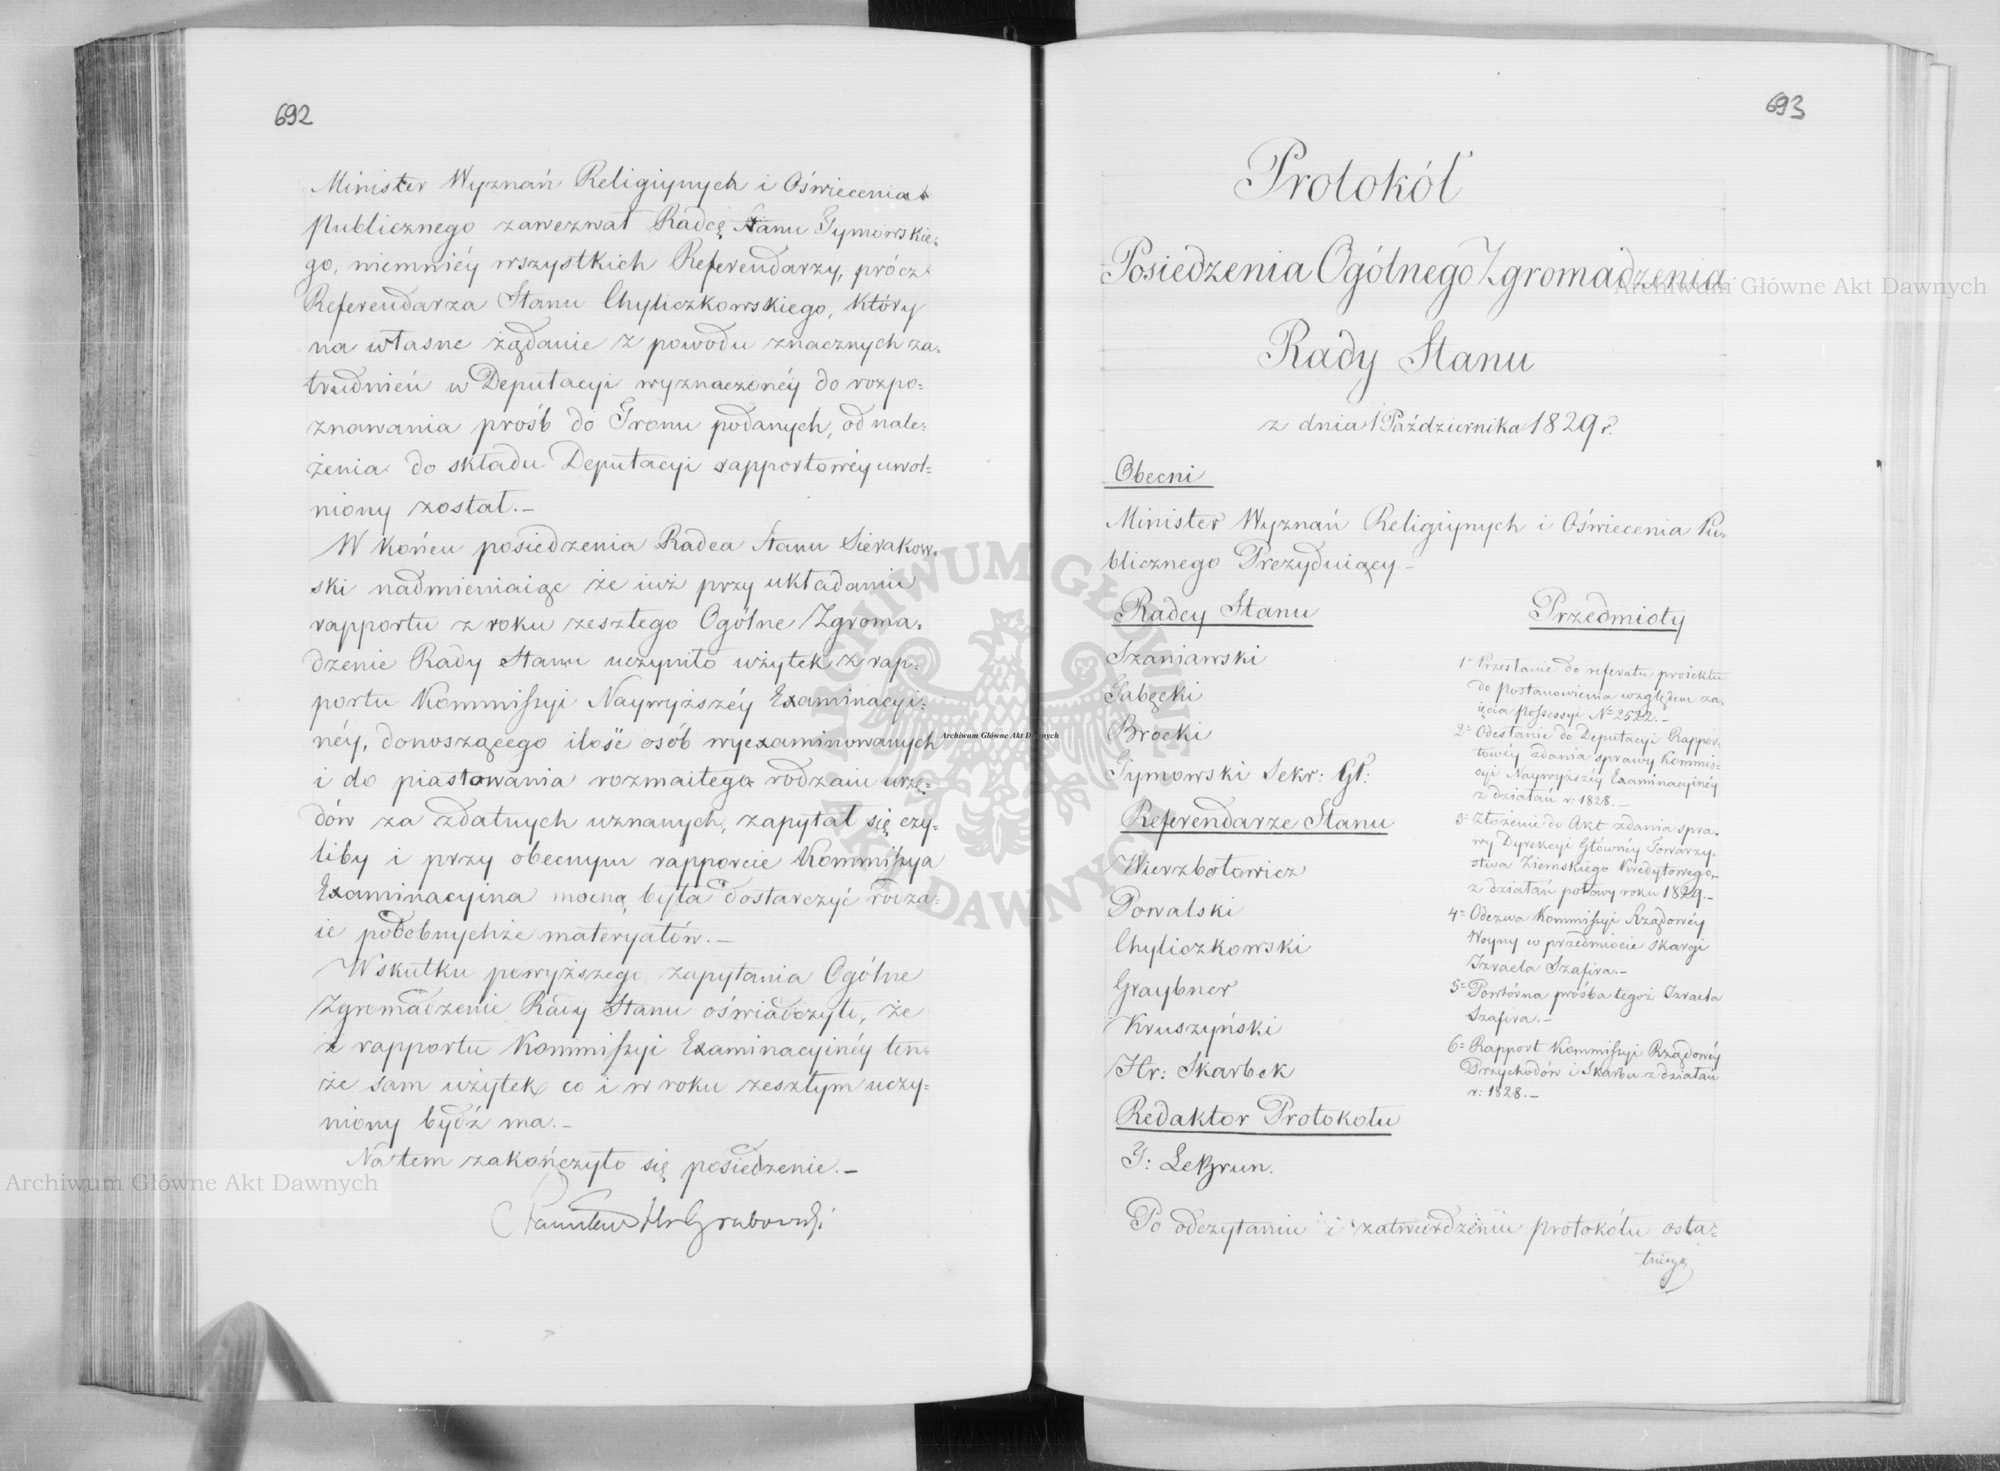 692
Minister Wyznań Religiynych i Oświecenia
Publicznego zawezwał Radcę Stanu Tymowskie-
go, niemniéy wszystkich Referendarzy, prócz
Referendarza Stanu Chyliczkowskiego, który
na własne żądanie z powodu znacznych za-
trudnień w Deputacyi wyznaczonéy do rozpo-
znawania próśb do Tronu podanych, od nale-
żenia do składu Deputacyi rapportowéy uwol-
niony został.-
W końcu posiedzenia Radca Stanu Sierakow-
ski nadmieniaiąc że iuż przy układaniu
rapportu z roku zeszłego Ogólne Zgroma-
dzenie Rady Stanu uczyniło użytek z rap-
portu Kommissyi Naywyższéy Examinacyi-
néy, donoszącego ilość osób wyexaminowanych
i do piastowania rozmaitego rodzaiu urzę-
dów za zdatnych uznanych, zapytał się czy-
liby i przy obecnym rapporcie Kommissya
Examinacyina mocną była dostarczyć rodza-
ie podobnychże materyałów.-
W skutku powyższego zapytania Ogólne
Zgromadzenie Rady Stanu oświadczyło, że
z rapportu Kommissyi Examinacyinéy ten-
że sam użytek co i w roku zeszłym uczy-
niony bydź ma.-
Na tem zakończyło się posiedzenie.-
Stanisław Hr Grabowski
693
Protokół
Posiedzenia Ogólnego Zgromadzenia
Rady Stanu
z dnia 1 Października 1829 r.
Obecni
Minister Wyznań Religiynych i Oświecenia Pu-
blicznego Prezyduiący -
Radcy Stanu
Szaniawski
Gabęcki
Brocki
Tymowski Sekr: Gł:
Referendarze Stanu
Wierzbołowicz
Powalski
Chyliczkowski
Graybner
Kruszyński
Hr: Skarbek
Redaktor Protokołu
T: LeBrun.
Przedmioty
1= Przesłanie do referatu proiektu
do postanowienia względem za-
ięcia possessyi No 2522.-
2= Odesłanie do Deputacyi Rappor-
towéy zdania sprawy Kommis-
syi Naywyższéy Examinacyinéy
z działań r: 1828.-
3= Złożenie do Akt zdania spra-
wy Dyrekcyi Głównéy Towarzy-
stwa Ziemskiego Kredytowego,
z działań połowy roku 1829.-
4= Odezwa Kommissyi Rządowéy
Woyny w przedmiocie skargi
Izraela Szafira.-
5= Powtórna prośba tegoż Izraela
Szafira.-
6= Rapport Kommissyi Rządowéy
Przychodów i Skarbu z działań
r: 1828.-
Po odczytaniu i zatwierdzeniu protokółu osta-
tniego
Archiwum Główne Akt Dawnych
Archiwum Główne Akt Dawnych
Archiwum Główne Akt Dawnych
ARCHIWUM GŁÓWNE AKT DAWNYCH